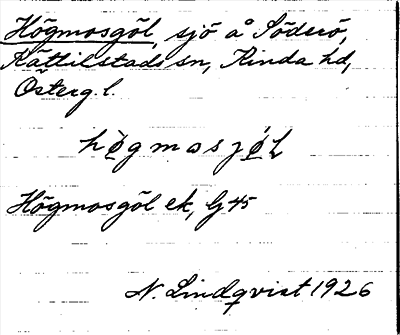 Högmosgöl, sjö å Söderö,
Kättilstads sn, Kinda hd,
Österg. l.
hø̀gmosjø̀l
Högmosgöl ek, G 45
N. Lindqvist 1926